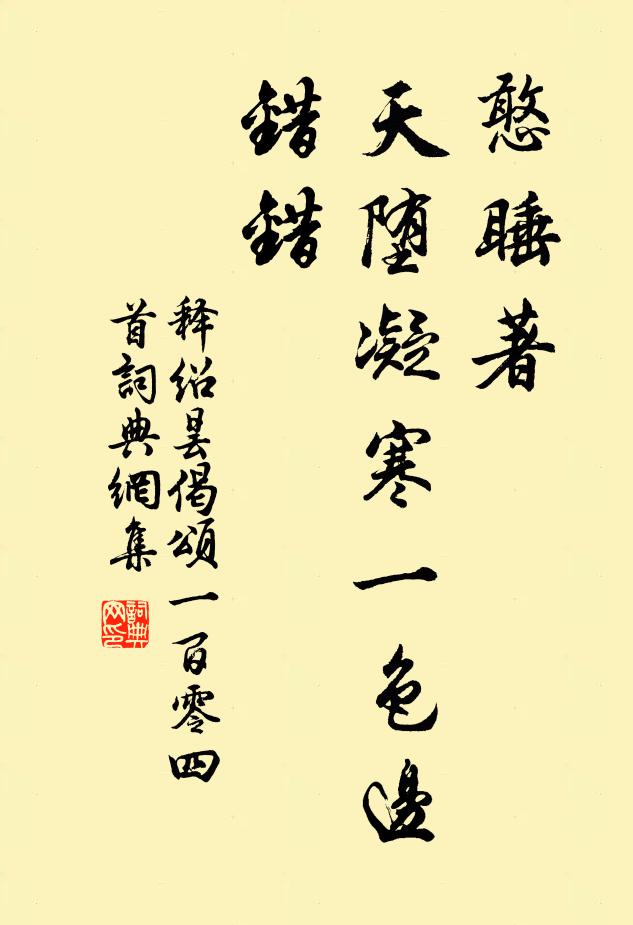 憨睡著
天堕凝寒一色邊
錯錯
释绍昙偈頌一百零四
首詞典網集
詞典
网印